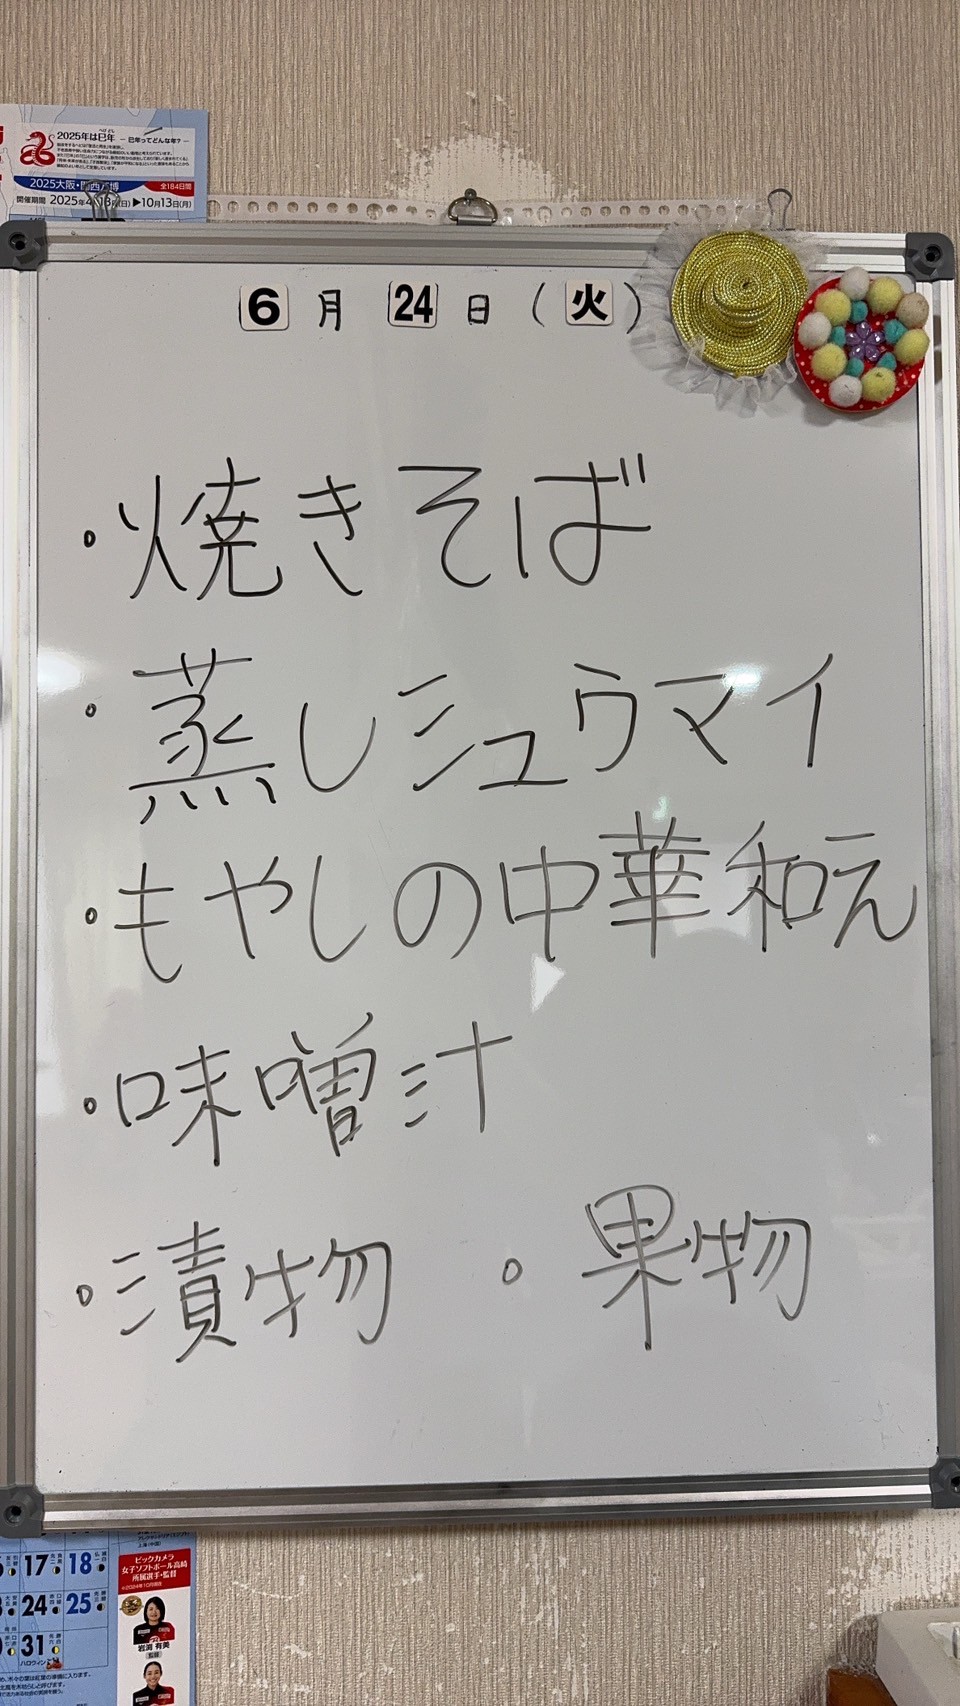 2025年は巳年 － 巳年ってどんな年? －
2025大阪・関西万博 全184日間
開催期間 2025年4月13日(日)▶10月13日(月)
6月24日(火)
・焼きそば
・蒸しシュウマイ
・もやしの中華和え
・味噌汁
・漬物 ・果物
17 18
24 25
31
ハロウィン
ビックカメラ
女子ソフトボール高崎
所属選手・監督
※2024年10月現在
岩渕 有美
監督